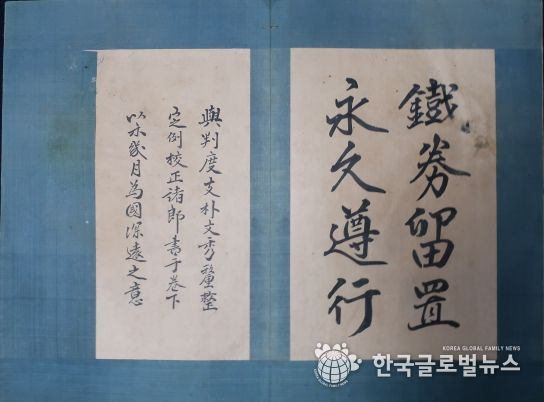 鐵券留置
永久遵行
與判度支朴文秀釐整
定例校正諸郎書于卷下
以示月為國深遠之意
KOREA GLOBAL FAMILY NEWS
한국글로벌뉴스